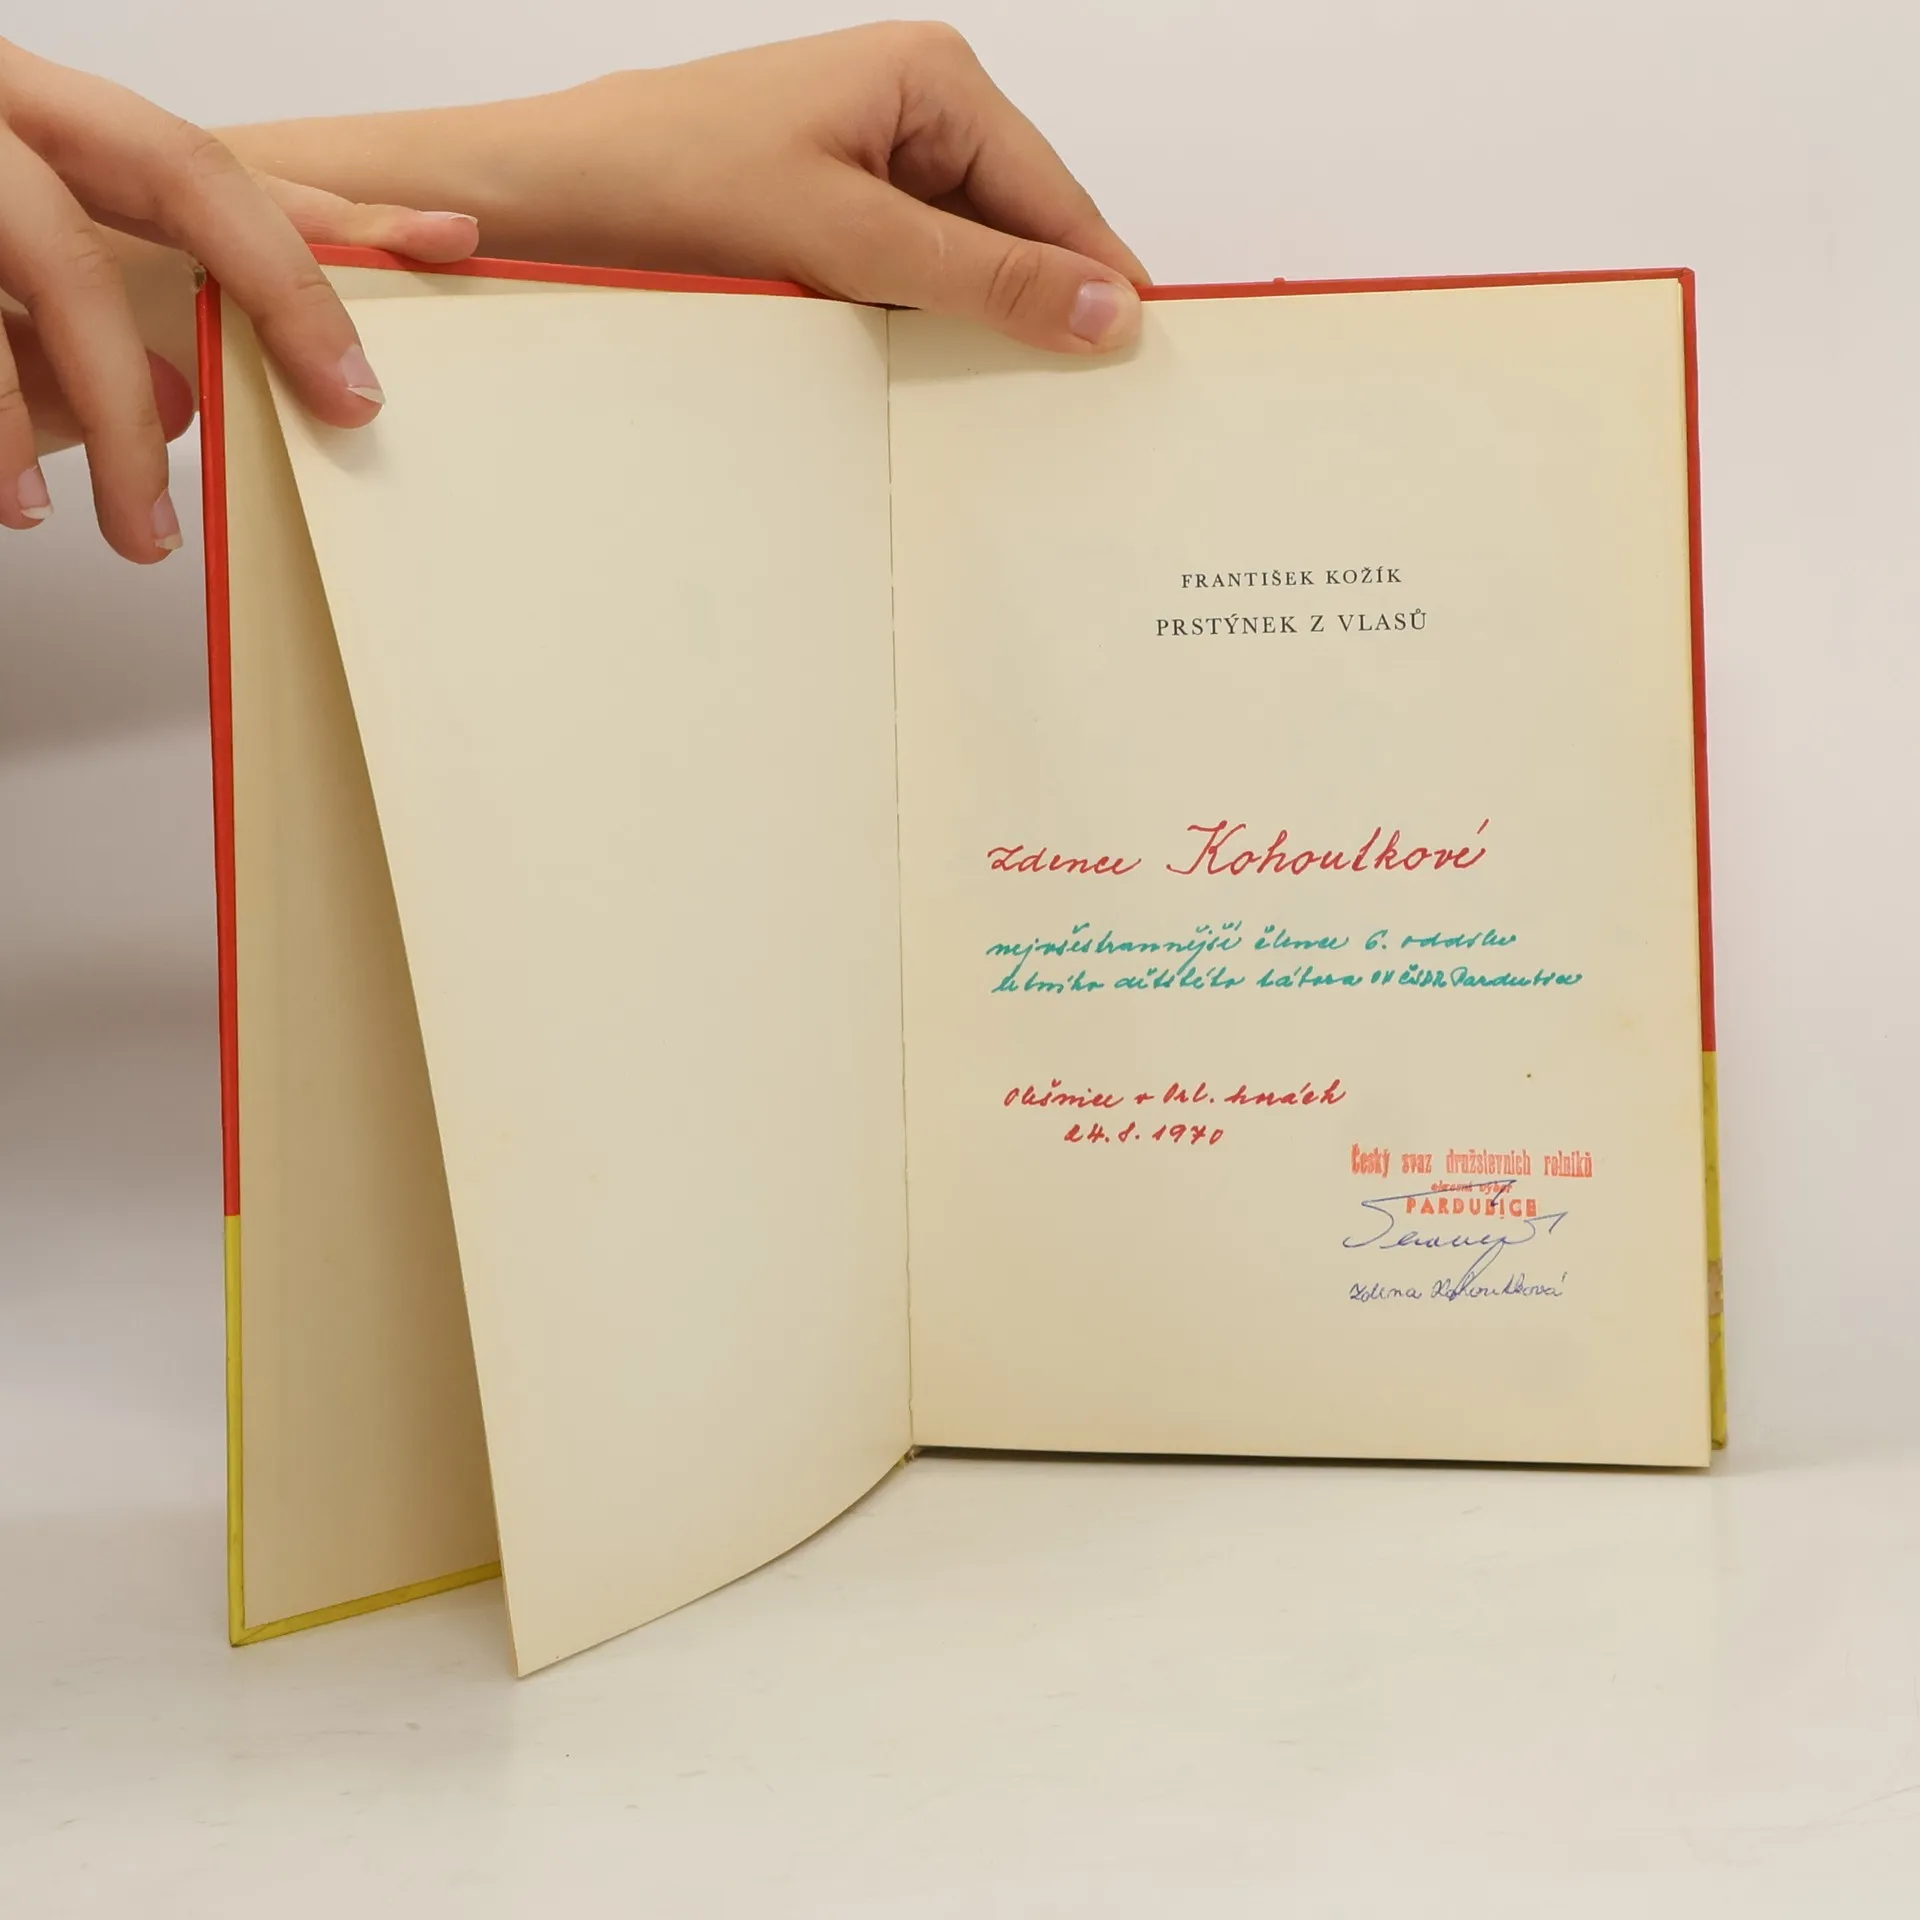 FRANTIŠEK KOŽÍK
PRSTÝNEK Z VLASŮ
Zdence Kohoutkové
nejvšestrannější člence 6. oddílu
letního dětského tábora OV ČSDR Pardubice
Olešnice v Orl. horách
24. 8. 1970
Český svaz družstevních rolníků
okresní výbor
PARDUBICE
Zdena Kohoutková